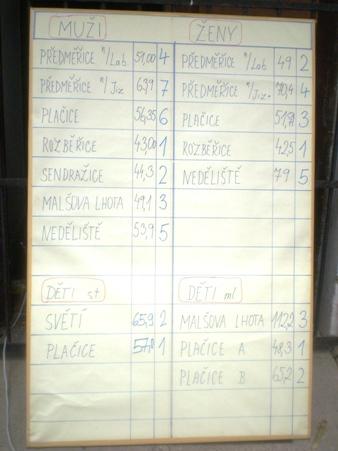 MUŽI
PŘEDMĚŘICE n/Lab 51,00 4
PŘEDMĚŘICE n/Jiz 63,9 7
PLAČICE 56,35 6
ROZBĚŘICE 43,00 1
SENDRAŽICE 44,3 2
MALŠOVA LHOTA 49,1 3
NEDĚLIŠTĚ 53,9 5
ŽENY
PŘEDMĚŘICE n/Lab 49 2
PŘEDMĚŘICE n/Jiz. 70,4 4
PLAČICE 3
ROZBĚŘICE 42,5 1
NEDĚLIŠTĚ 79 5
DĚTI st
SVĚTÍ 65,9 2
PLAČICE 1
DĚTI ml
MALŠOVA LHOTA 112,2 3
PLAČICE A 48,3 1
PLAČICE B 65,2 2